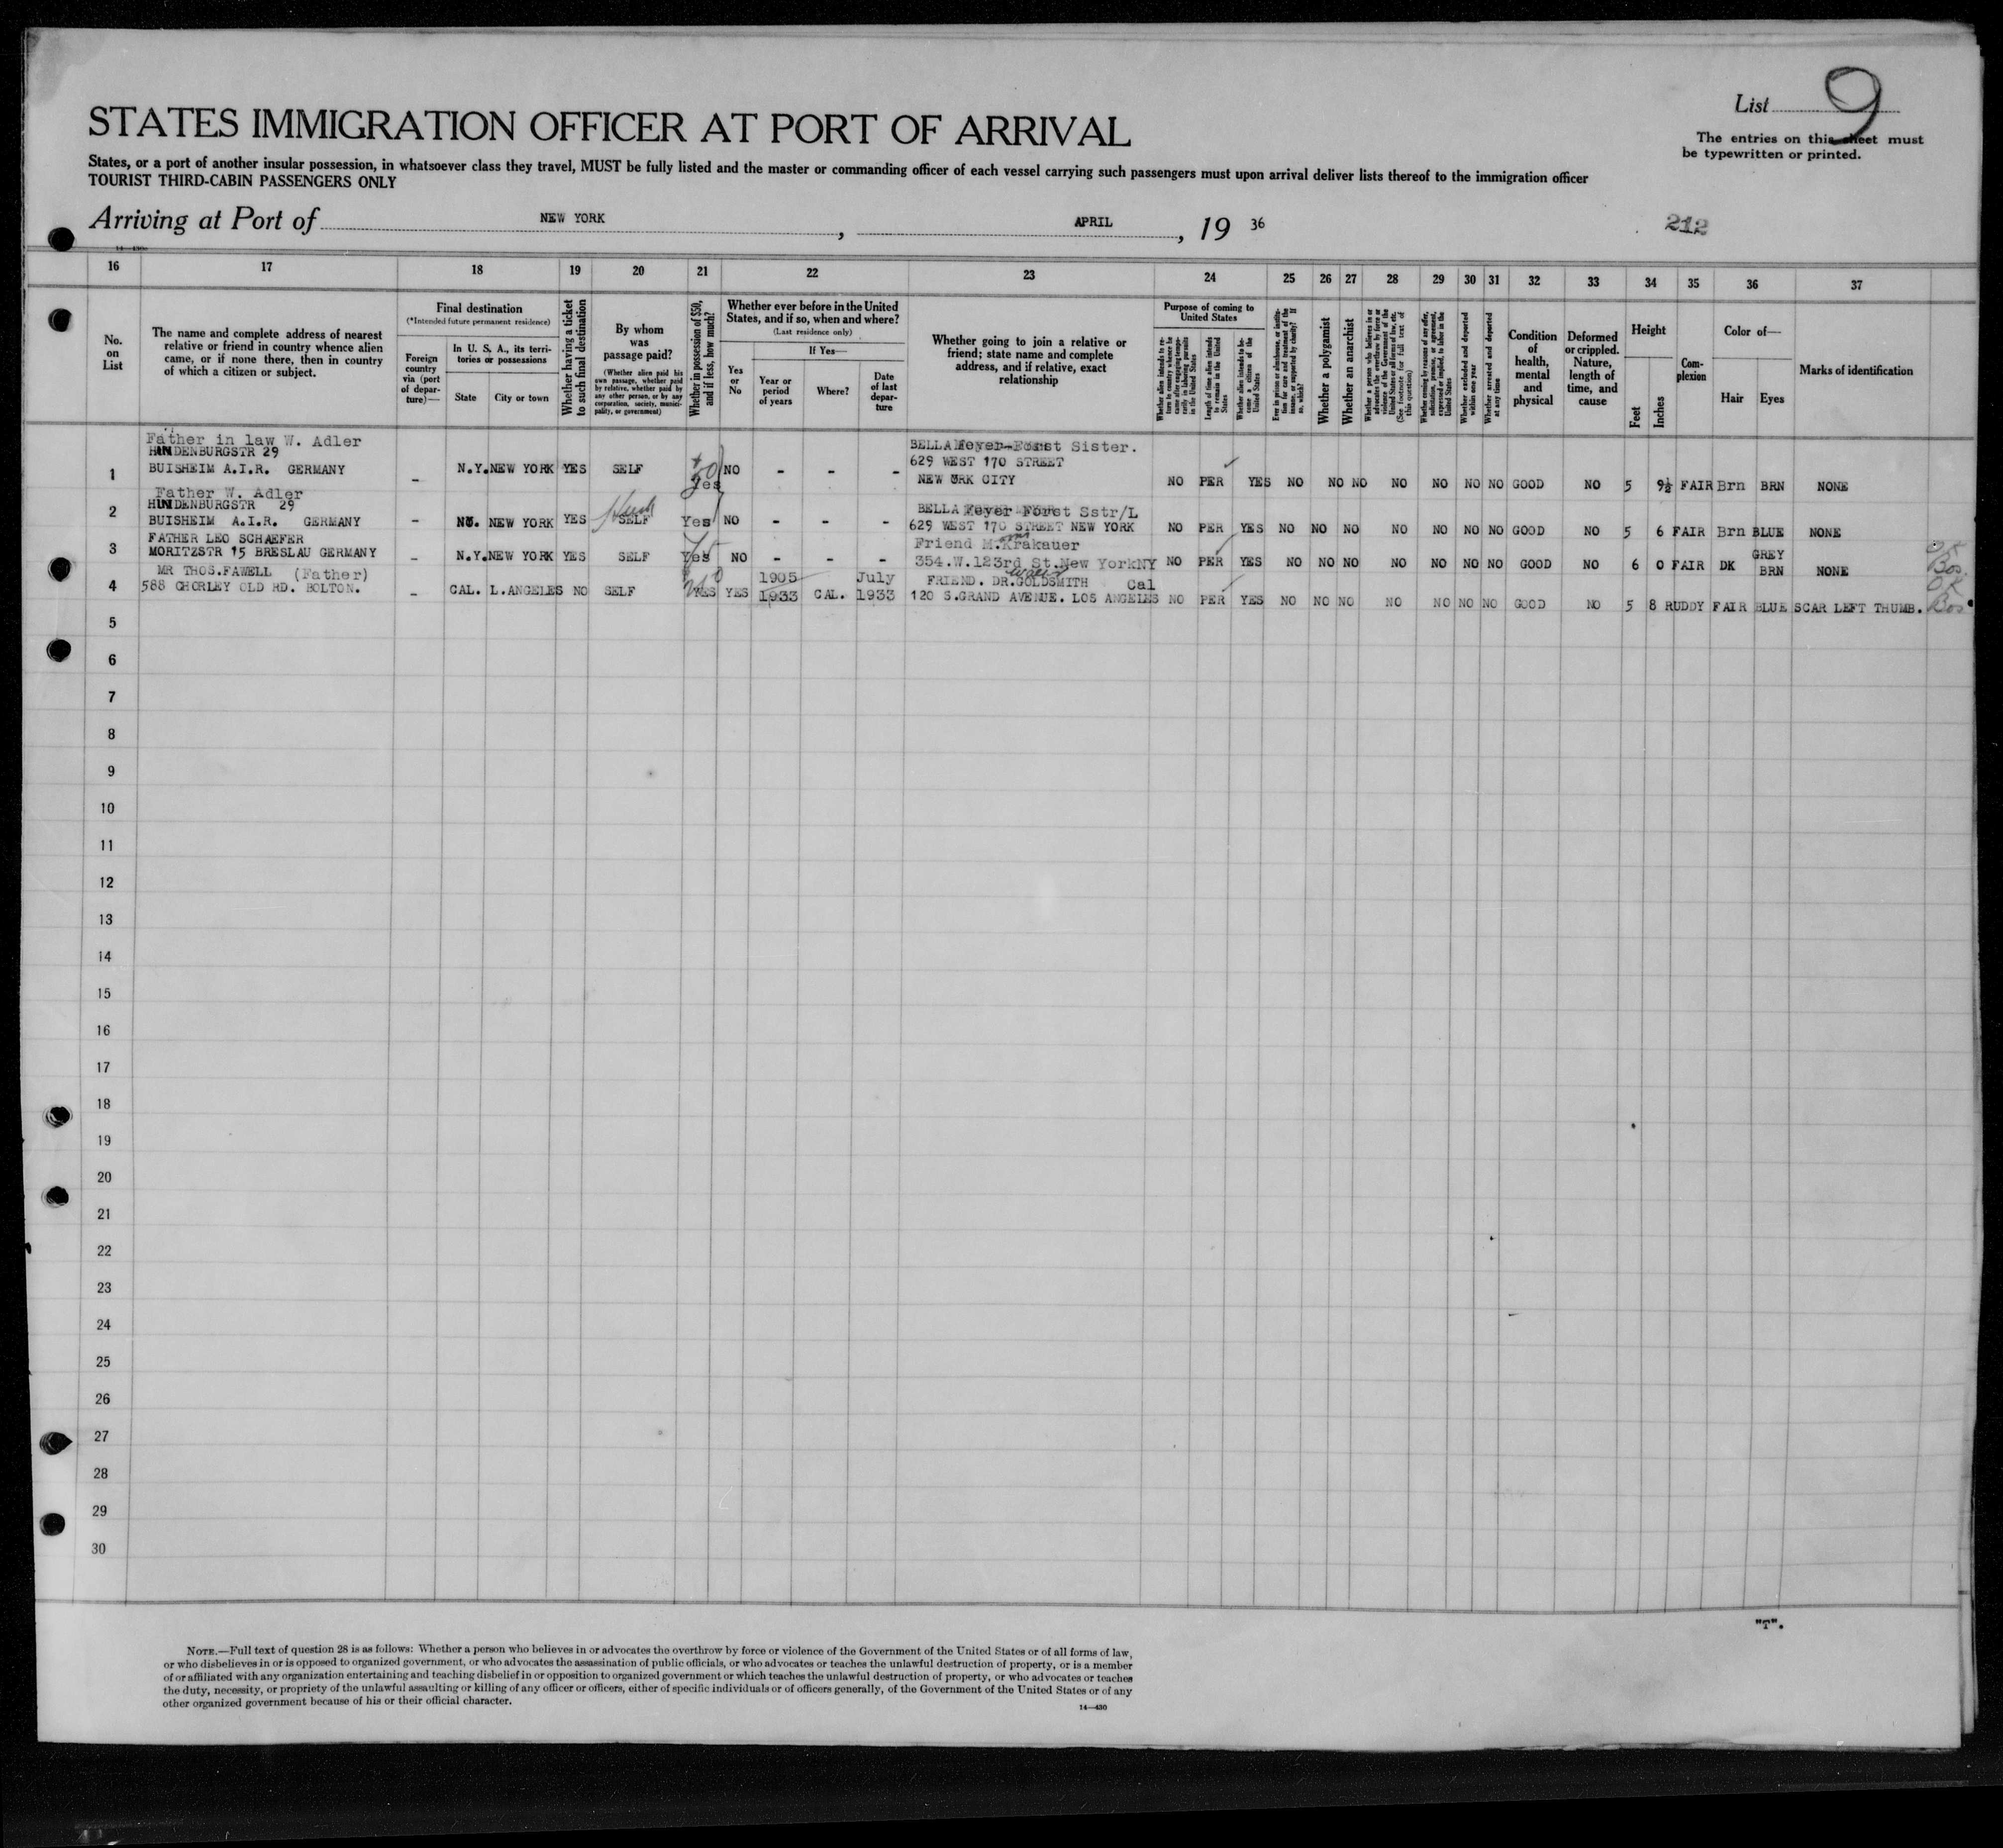 List 9
STATES IMMIGRATION OFFICER AT PORT OF ARRIVAL
The entries on this sheet must
be typewritten or printed.
States, or a port of another insular possession, in whatsoever class they travel, MUST be fully listed and the master or commanding officer of each vessel carrying such passengers must upon arrival deliver lists thereof to the immigration officer
TOURIST THIRD-CABIN PASSENGERS ONLY
Arriving at Port of NEW YORK, APRIL, 19 36
212
16 17 18 19 20 21 22 23 24 25 26 27 28 29 30 31 32 33 34 35 36 37
No. on List
The name and complete address of nearest relative or friend in country whence alien came, or if none there, then in country of which a citizen or subject.
Final destination
(*Intended future permanent residence)
Foreign country via (port of departure)—
In U. S. A., its territories or possessions
State
City or town
Whether having a ticket to such final destination
By whom was passage paid?
(Whether alien paid his own passage, whether paid by relative, whether paid by any other person, or by any corporation, society, municipality, or government)
Whether in possession of $50, and if less, how much?
Whether ever before in the United States, and if so, when and where?
(Last residence only)
Yes or No
If Yes—
Year or period of years
Where?
Date of last departure
Whether going to join a relative or friend; state name and complete address, and if relative, exact relationship
Purpose of coming to United States
Length of time alien intends to remain in the United States
Whether alien intends to become a citizen of the United States
Whether a polygamist
Whether an anarchist
Whether excluded and deported within one year
Whether arrested and deported at any time
Condition of health, mental and physical
Deformed or crippled. Nature, length of time, and cause
Height
Feet
Inches
Complexion
Color of—
Hair
Eyes
Marks of identification
Father in law W. Adler
HINDENBURGSTR 29
1 BUISHEIM A.I.R. GERMANY - N.Y. NEW YORK YES SELF Yes NO - - -
BELLA Meyer-Forst Sister.
629 WEST 170 STREET
NEW ORK CITY NO PER YES NO NO NO NO NO NO NO GOOD NO 5 9½ FAIR Brn BRN NONE
Father W. Adler
HINDENBURGSTR 29
2 BUISHEIM A.I.R. GERMANY - NEW YORK YES SELF Yes NO - - -
BELLA Meyer Forst Sstr/L
629 WEST 170 STREET NEW YORK NO PER YES NO NO NO NO NO NO NO GOOD NO 5 6 FAIR Brn BLUE NONE
FATHER LEO SCHAEFER
3 MORITZSTR 15 BRESLAU GERMANY - N.Y. NEW YORK YES SELF Yes NO - - -
Friend M. Krakauer
354.W.123rd St.New YorkNY NO PER YES NO NO NO NO NO NO NO GOOD NO 6 0 FAIR DK GREY BRN NONE
MR THOS.FAWELL (Father)
4 588 CHORLEY OLD RD. BOLTON. - CAL. L.ANGELES NO SELF YES YES 1905 1933 CAL. July 1933
FRIEND. DR.GOLDSMITH Cal
120 S.GRAND AVENUE. LOS ANGELES NO PER YES NO NO NO NO NO NO NO GOOD NO 5 8 RUDDY FAIR BLUE SCAR LEFT THUMB.
OK
5
6
7
8
9
10
11
12
13
14
15
16
17
18
19
20
21
22
23
24
25
26
27
28
29
30
"T".
NOTE.—Full text of question 28 is as follows: Whether a person who believes in or advocates the overthrow by force or violence of the Government of the United States or of all forms of law,
or who disbelieves in or is opposed to organized government, or who advocates the assassination of public officials, or who advocates or teaches the unlawful destruction of property, or is a member
of or affiliated with any organization entertaining and teaching disbelief in or opposition to organized government or which teaches the unlawful destruction of property, or who advocates or teaches
the duty, necessity, or propriety of the unlawful assaulting or killing of any officer or officers, either of specific individuals or of officers generally, of the Government of the United States or of any
other organized government because of his or their official character.
14—430